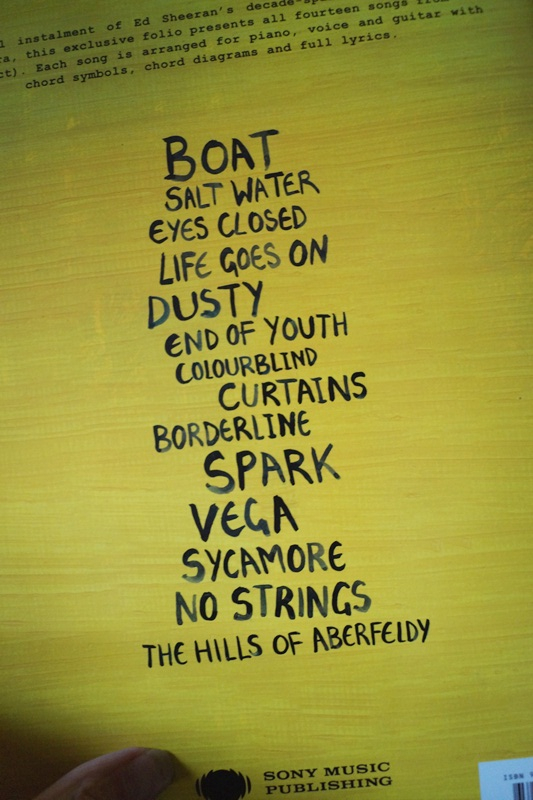 l instalment of Ed Sheeran's
this exclusive folio presents all fourteen songs
Each song is arranged for piano, voice and guitar with
chord symbols, chord diagrams and full lyrics.
BOAT
SALT WATER
EYES CLOSED
LIFE GOES ON
DUSTY
END OF YOUTH
COLOURBLIND
CURTAINS
BORDERLINE
SPARK
VEGA
SYCAMORE
NO STRINGS
THE HILLS OF ABERFELDY
SONY MUSIC
PUBLISHING
ISBN